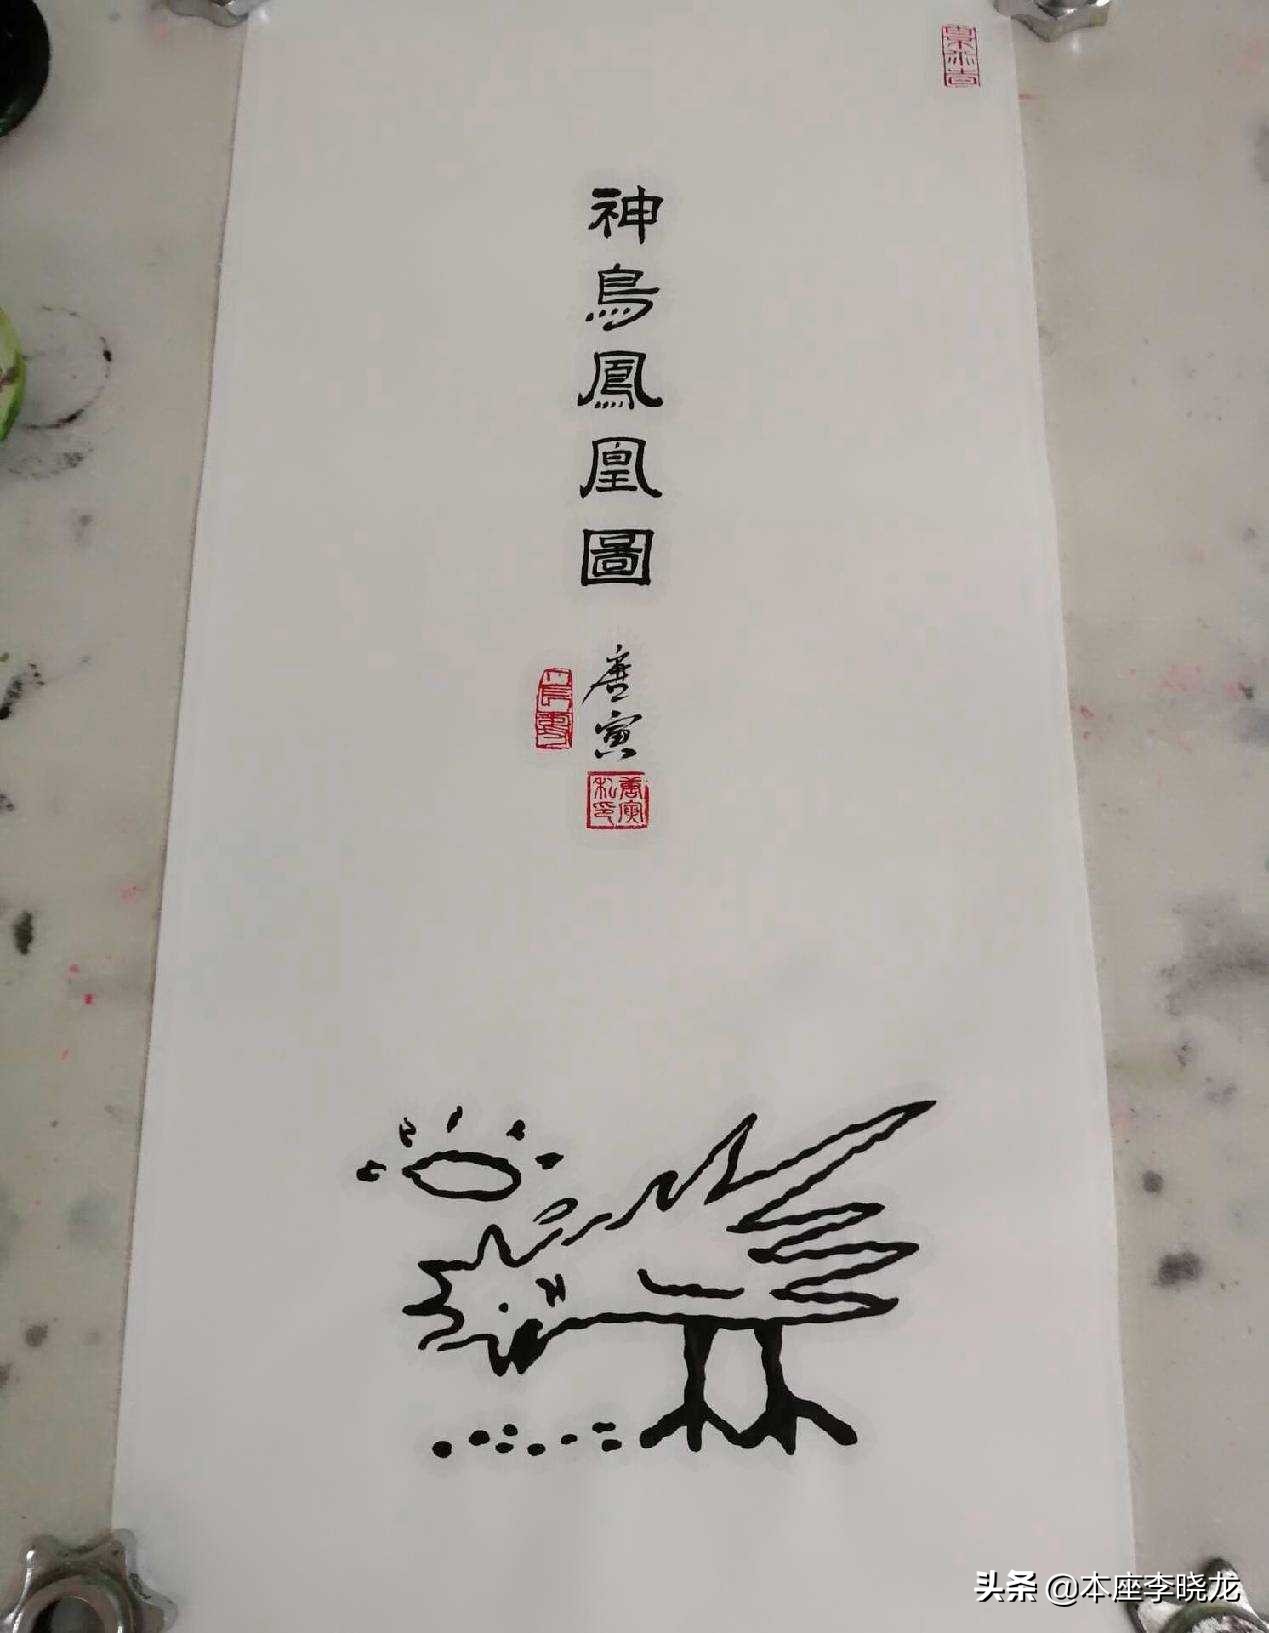 神鳥鳳凰圖
唐寅
唐寅私印
头条 @本座李晓龙